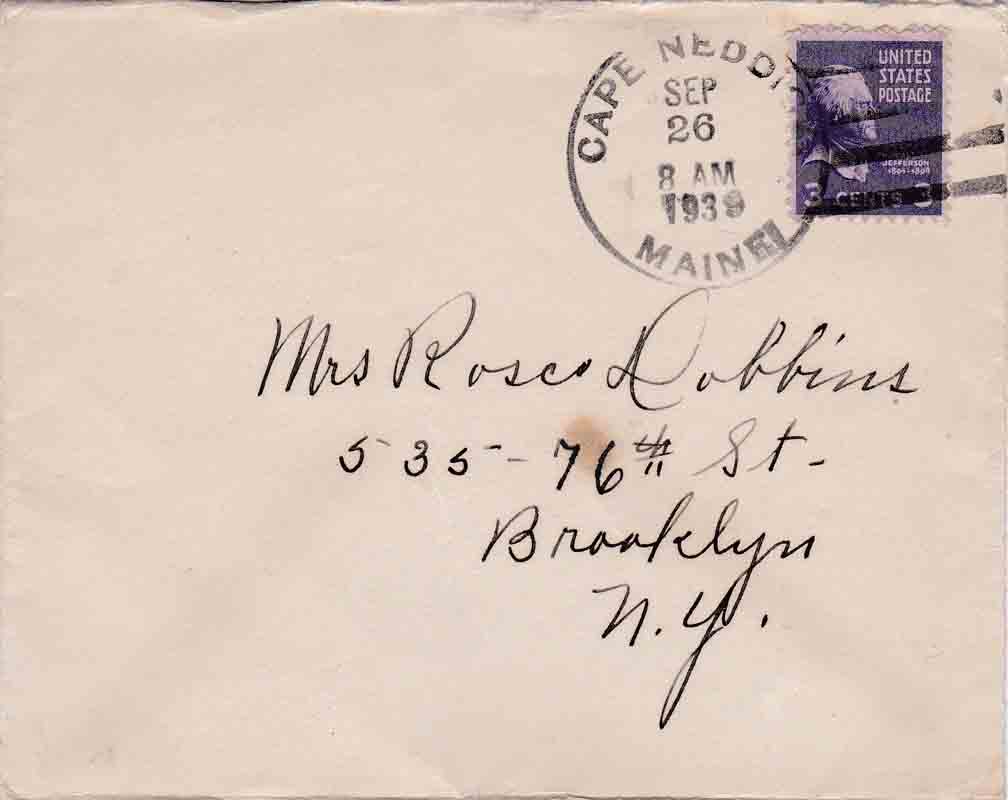 CAPE NEDDICK
SEP
26
8 AM
1939
MAINE
UNITED
STATES
POSTAGE
JEFFERSON
1801-1809
3 CENTS 3
Mrs Rosco Dobbins
535-76th St-
Brooklyn
N.Y.